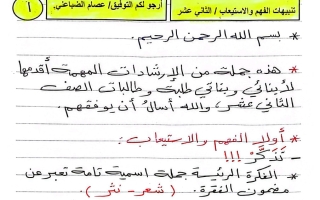 تنبيهات الفهم والاستيعاب / الثاني عشر
أرجو لكم التوفيق/ عصام الضباعني.
١
* بسم الله الرحمن الرحيم.
* هذه جملة من الإرشادات المهمة أقدمها
لأبنائي وبناتي طلبة وطالبات الصف
الثاني عشر، والله أسأل أن يوفقهم.
* أولا: الفهم والاستيعاب:
- تذكّر !!!
* الفكرة الرئيسة جملة اسمية تامة تعبر عن
مضمون الفقرة. ( شعر - نثر ).